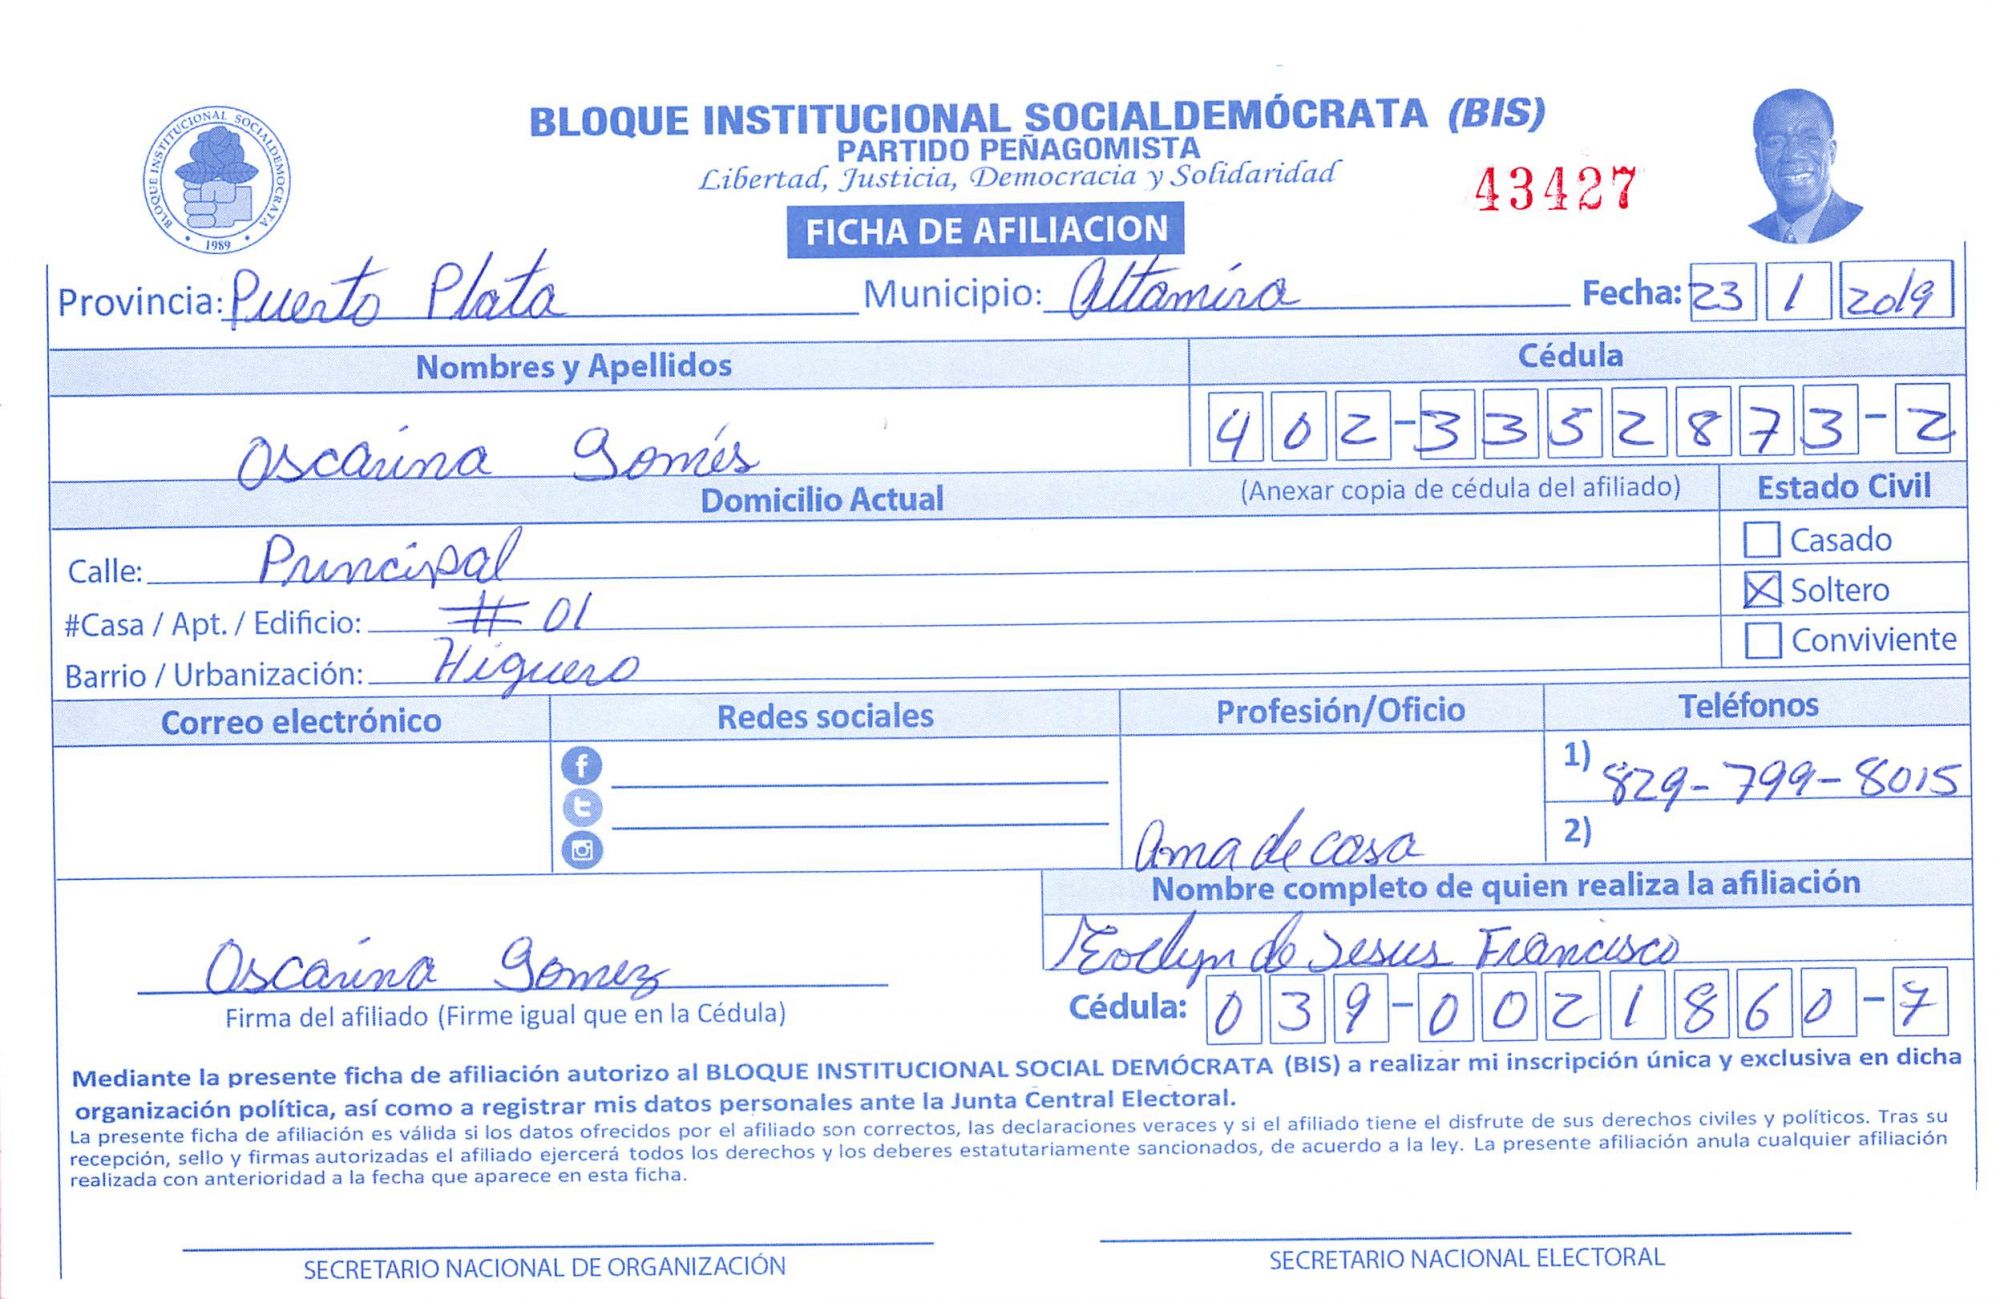 BLOQUE INSTITUCIONAL SOCIALDEMOCRATA
1989
BLOQUE INSTITUCIONAL SOCIALDEMÓCRATA (BIS)
PARTIDO PEÑAGOMISTA
Libertad, Justicia, Democracia y Solidaridad
43427
FICHA DE AFILIACION
Provincia: Puerto Plata Municipio: Altamira Fecha: 23 1 2019
Nombres y Apellidos Cédula
Oscarina Gomés 402-3352873-2
Domicilio Actual (Anexar copia de cédula del afiliado) Estado Civil
Calle: Principal Casado
#Casa / Apt. / Edificio: # 01 Soltero
Barrio / Urbanización: Higuero Conviviente
Correo electrónico Redes sociales Profesión/Oficio Teléfonos
1) 829-799-8015
2)
Ama de casa
Nombre completo de quien realiza la afiliación
Evelyn de Jesus Francisco
Oscarina Gomez
Firma del afiliado (Firme igual que en la Cédula)
Cédula: 039-0021860-7
Mediante la presente ficha de afiliación autorizo al BLOQUE INSTITUCIONAL SOCIAL DEMÓCRATA (BIS) a realizar mi inscripción única y exclusiva en dicha
organización política, así como a registrar mis datos personales ante la Junta Central Electoral.
La presente ficha de afiliación es válida si los datos ofrecidos por el afiliado son correctos, las declaraciones veraces y si el afiliado tiene el disfrute de sus derechos civiles y políticos. Tras su
recepción, sello y firmas autorizadas el afiliado ejercerá todos los derechos y los deberes estatutariamente sancionados, de acuerdo a la ley. La presente afiliación anula cualquier afiliación
realizada con anterioridad a la fecha que aparece en esta ficha.
SECRETARIO NACIONAL DE ORGANIZACIÓN SECRETARIO NACIONAL ELECTORAL